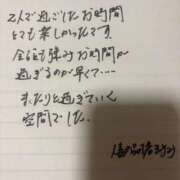 2人で過ごしたお時間
とても楽しかったです。
お時間が
過ぎるのが早くて…
まったりと過ぎていく
空間でした。